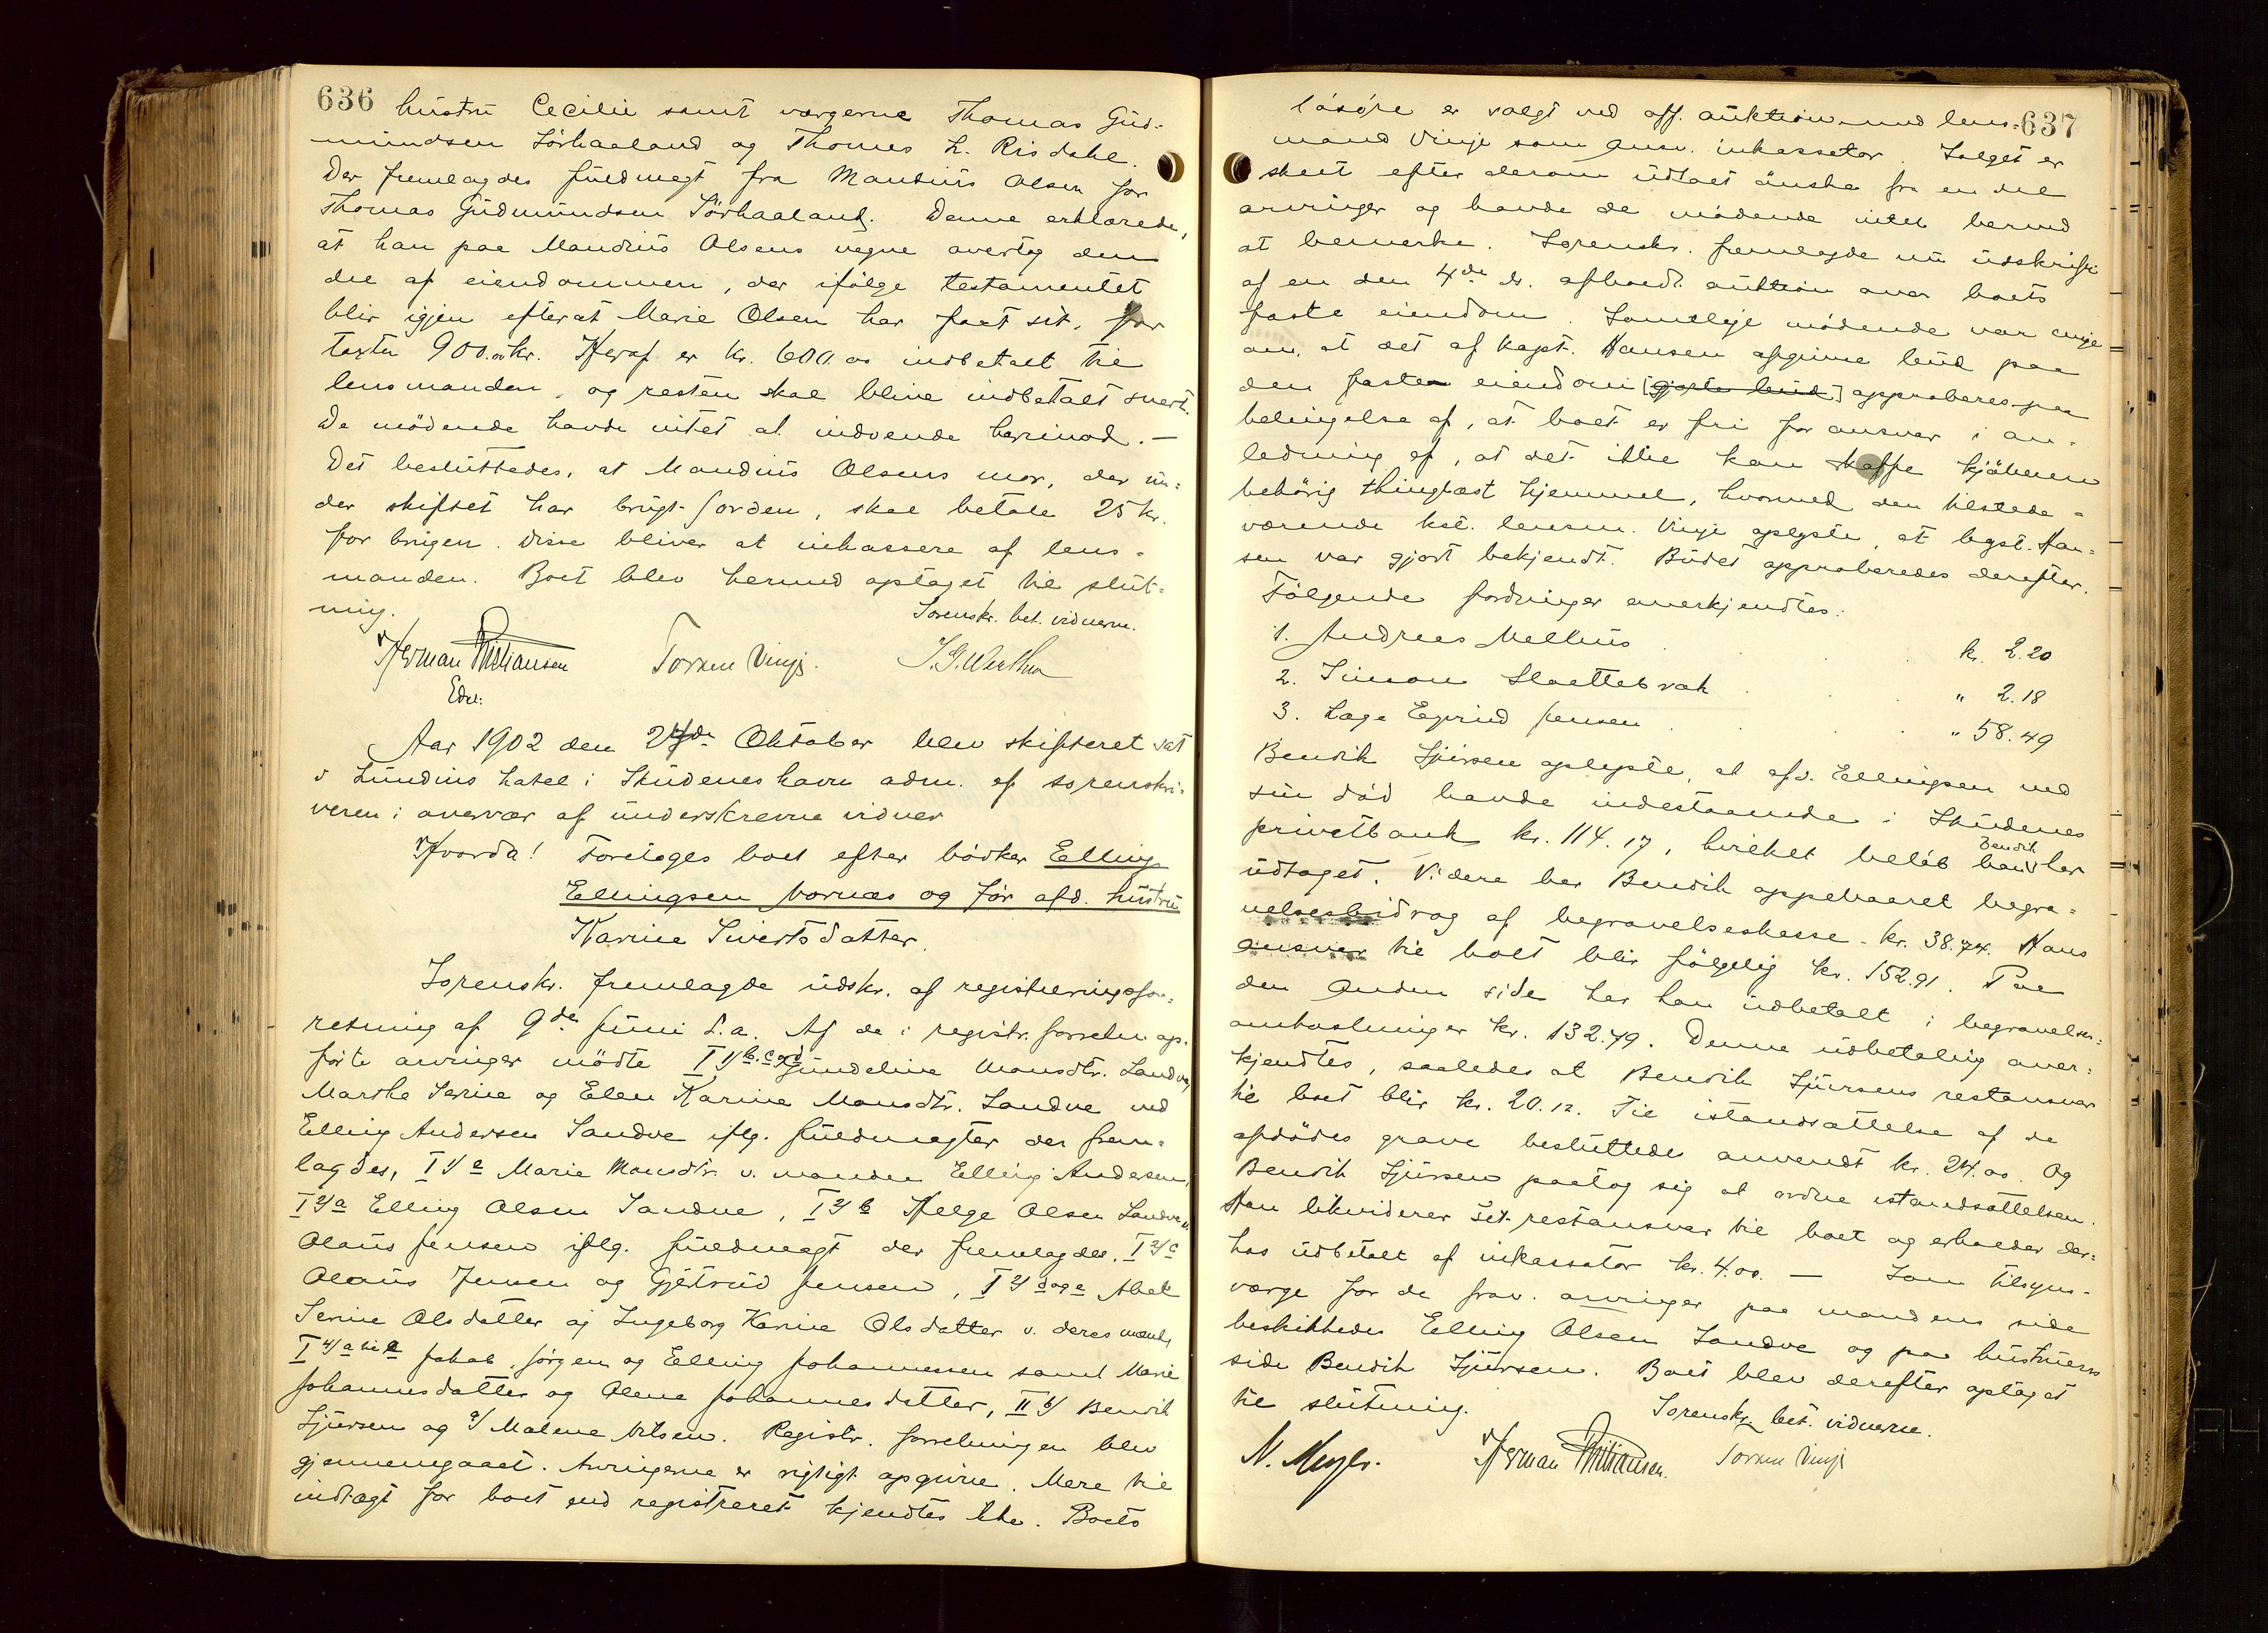 636
hustru Cecilie samt værgerne Thomas Gud-
mundsen Sörhaaland og Thomes L. Risdahl.
Der fremlagdes fuldmagt fra Mandius Olsen for
Thomas Gudmundsen Sörhaaland. Denne erklærede,
at han paa Mandius Olsens vegne overtog den
del af eiendommen, der ifölge testamentet
blir igjen efterat Marie Olsen har faat sit, for
taxten 900.00 kr. Heraf er kr. 600.00 indbetalt til
lensmanden, og resten skal blive indbetalt snart.
De mödende havde intet at indvende herimod. —
Det besluttedes, at Mandius Olsens mor, der un-
der skiftet har brugt jorden, skal betale 25 kr.
for brugen. Disse bliver at inkassere af lens-
manden. Boet blev hermed optaget til slut-
ning.
Sorenskr. bet. vidnerne.
Herman Kristiansen Torkel Vinje.
Edsv.
Aar 1902 den 24de Oktober blev skifteret sat
i Lundius hotel i Skudeneshavn adm. af sorenskri-
veren i overvær af underskrevne vidner
Hvorda! Foretoges boet efter bödker Elling
Ellingsen Vornæs og för afd. hustru
Karine Sivertsdatter.
Sorenskr. fremlagde udskr. af registreringsfor-
retning af 9de Juni d.a. Af de i registr. forretn. op-
förte arvinger mödte I 1/ b, c og d Gundeline Monsdtr. Sandve,
Marthe Serine og Elen Karine Monsdtr. Sandve ved
Elling Andersen Sandve iflg. fuldmagter der frem-
lagdes, I 1/ a Marie Monsdtr. v. manden Elling Andersen,
I 2/ a Elling Olsen Sandve, I 2/ b Helge Olsen Sandve v.
Olaus Jensen iflg. fuldmagt der fremlagdes, I 2/ c
Olaus Jensen og Gjertrud Jensen, I 2/ d og e Abel
Serine Olsdatter og Ingeborg Karine Olsdatter v. deres mænd,
I 4/ a til e Jakob, Jörgen og Elling Johannessen samt Marie
Johannesdatter og Olene Johannesdatter, II b/ Bendik
Sjursen og a/ Malene Nilsen. Registr. forretningen blev
gjennemgaaet. Arvingerne er rigtigt opgivne. Mere til
indtægt for boet end registreret kjendtes ikke. Boets
637
lösöre er solgt ved off. auktion med lens-
mand Vinje som ansv. inkassator. Salget er
skeet efter derom udtalt önske fra en del
arvinger og havde de mödende intet herved
at bemerke. Sorenskr. fremlagde nu udskrift
af en den 4de ds. afholdt auktion over boets
faste eiendom. Samtlige mödende var enige
om, at det af kapt. Hansen afgivne bud paa
den faste eiendom [gjorte bud] approberes paa
betingelse af, at boet er fri for ansvar i an-
ledning af, at det ikke kan skaffe kjöberen
behörig thinglæst hjemmel, hvormed den tilstede-
værende kst. lensm. Vinje oplyste, at kapt. Han-
sen var gjort bekjendt. Budet approberedes derefter.
Fölgende fordringer anerkjendtes:
1. Andreas Melhus . . kr. 2.20
2. Simon Slaattebrak . . " 2.18
3. Lage Egrud Jensen . . " 58.49
Bendik Sjursen oplyste, at afd. Ellingsen ved
sin död havde indestaaende i Skudenes
privatbank kr. 114.17, hvilket belöb Bendik han har
udtaget. Videre har Bendik oppebaaret begra-
velsesbidrag af begravelseskasse kr. 38.74. Hans
ansvar til boet blir fölgelig kr. 152.91. Paa
den anden side har han udbetalt i begravelses-
omkostninger kr. 132.79. Denne udbetaling aner-
kjendtes, saaledes at Bendik Sjursens restansvar
til boet blir kr. 20.12. Til istandsættelse af de
afdödes grave besluttedes anvendt kr. 24.00. Og
Bendik Sjursen paatog sig at ordne istandsættelsen.
Han likviderer sit restansvar til boet og erholder der-
hos udbetalt af inkassator kr. 4.00. — Som tilsyns-
værge for de frav. arvinger paa mandens side
beskikkedes Elling Olsen Sandve og paa hustruens
side Bendik Sjursen. Boet blev derefter optaget
til slutning.
Sorenskr. bet. vidnerne.
Herman Kristiansen. Torkel Vinje